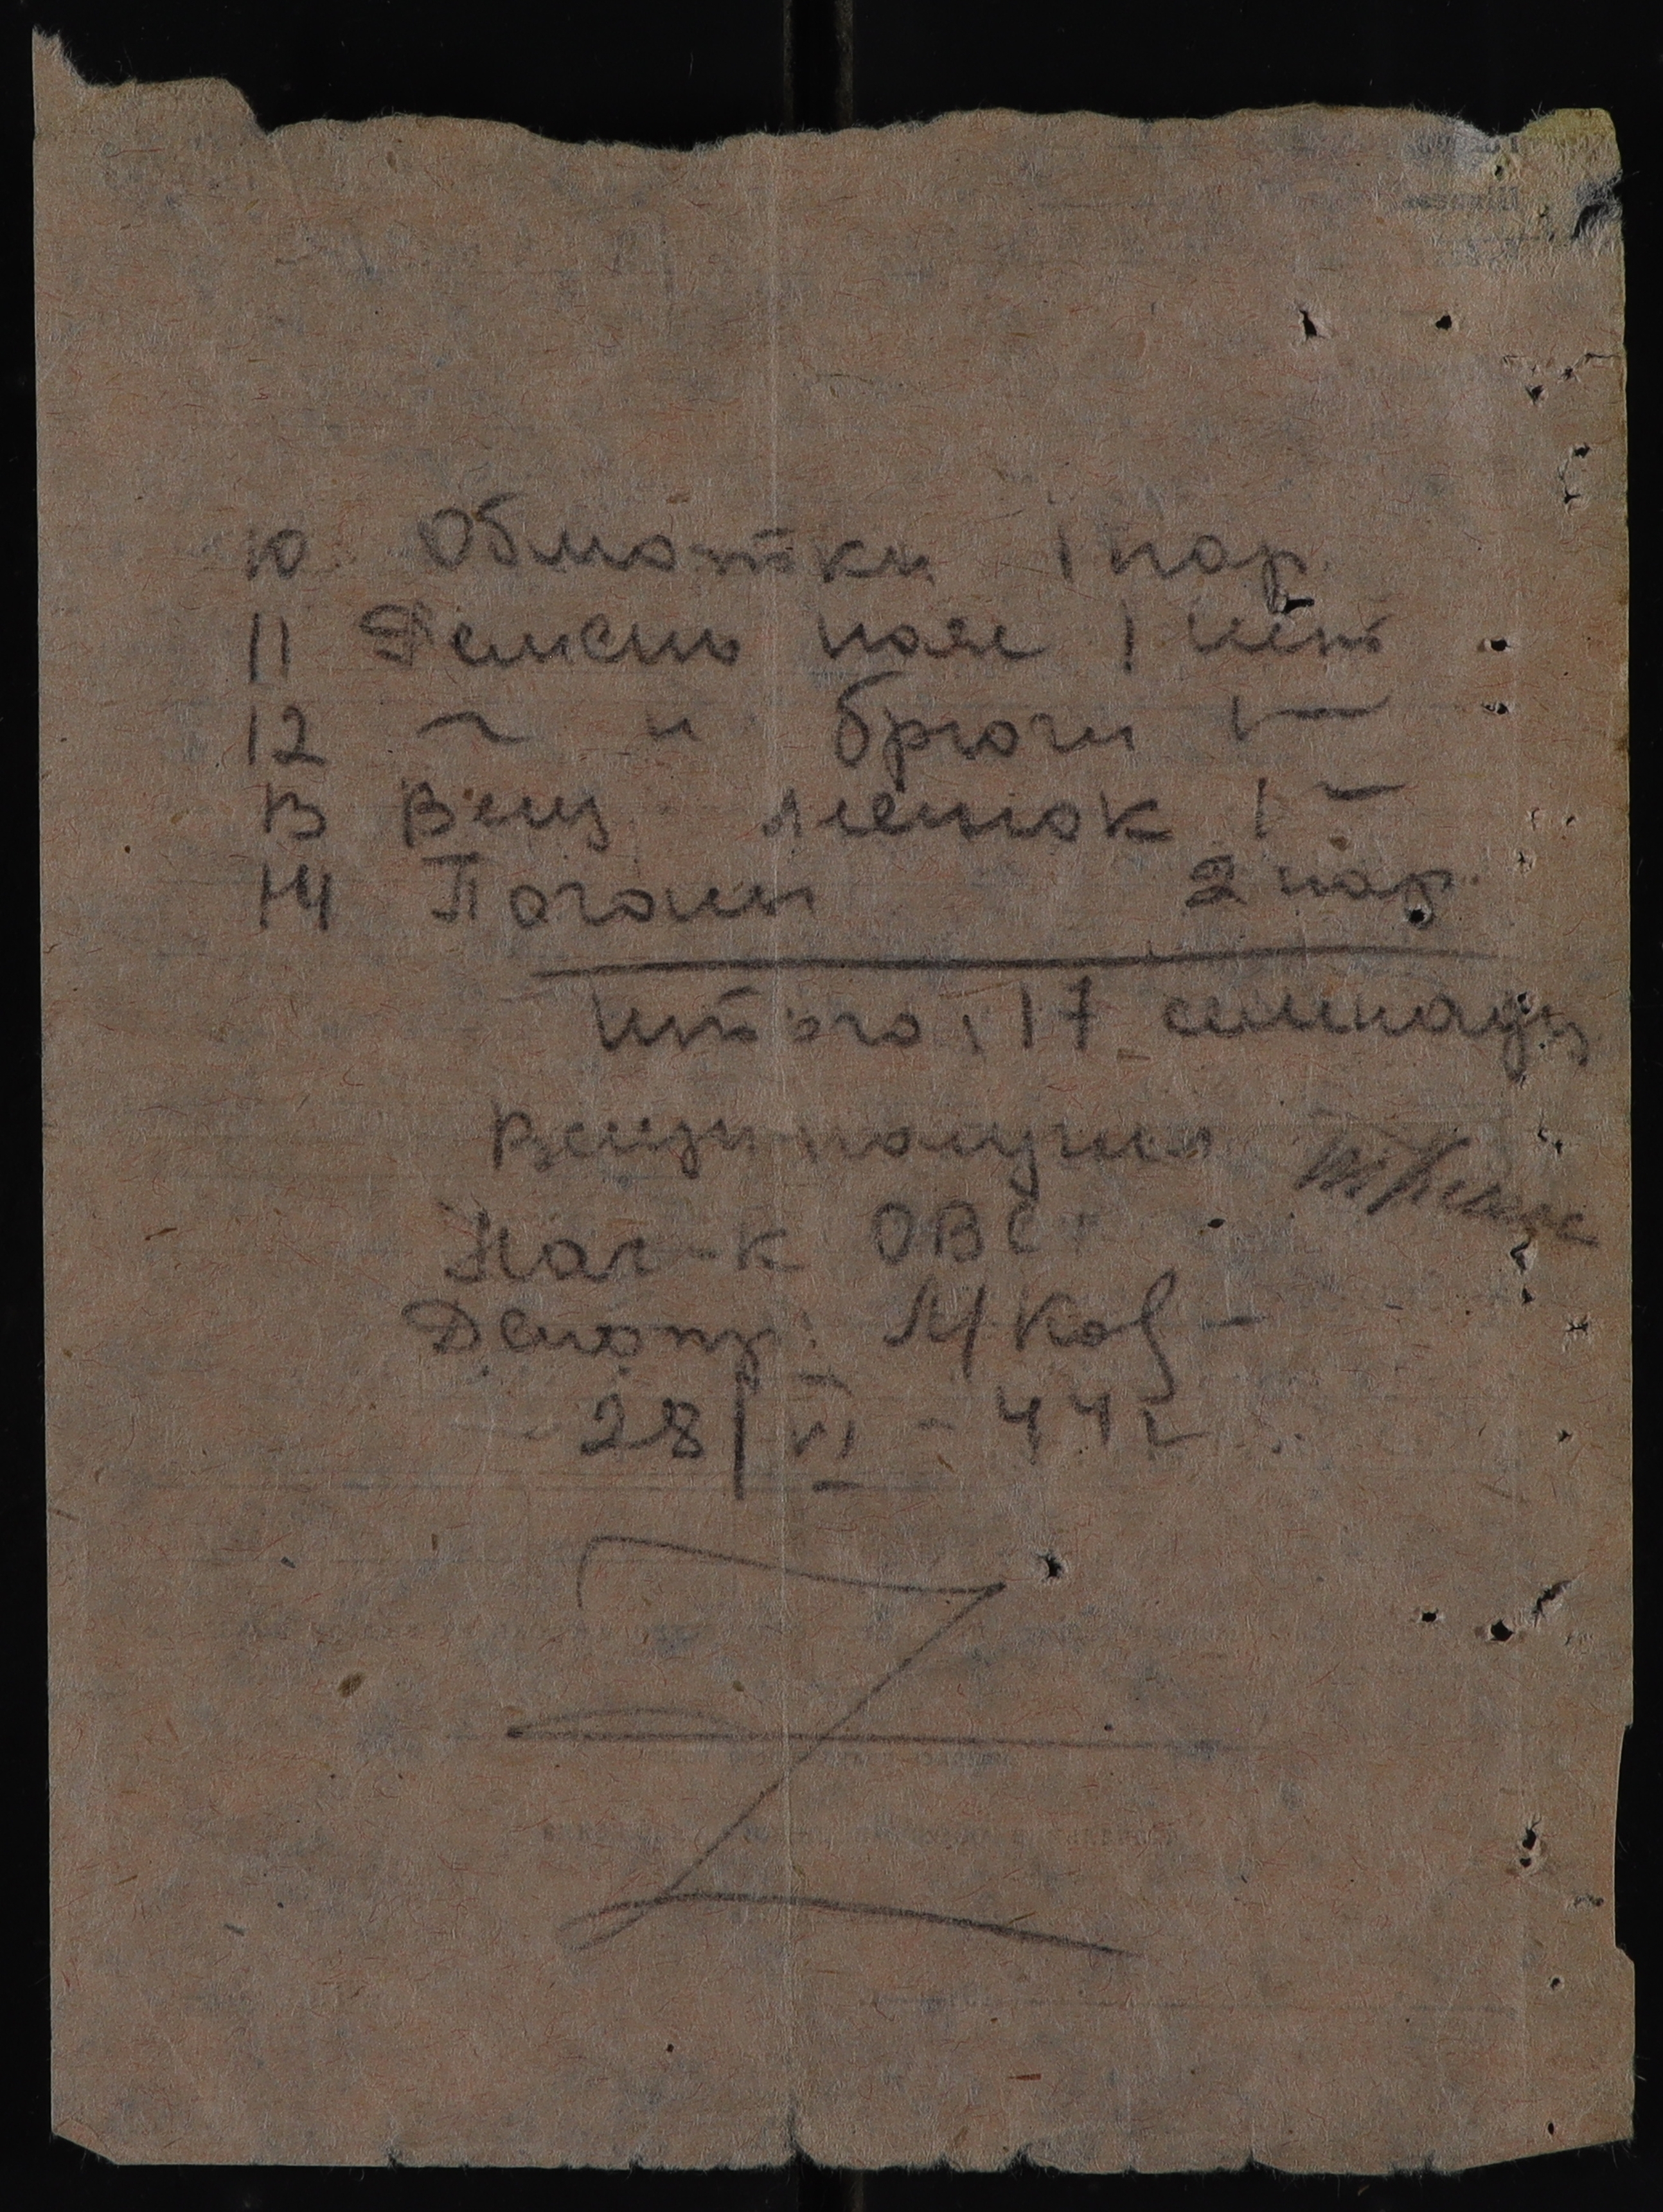 10 Обмотки 1 пар.
11 Ремень пояс 1 шт
12 ~ " брючн 1 —
13 Вещ. мешок 1 —
14 Погоны 2 пар.
Итого: 17 семнадц
Вещи получил
Нач-к ОВС
28/VI - 44 г